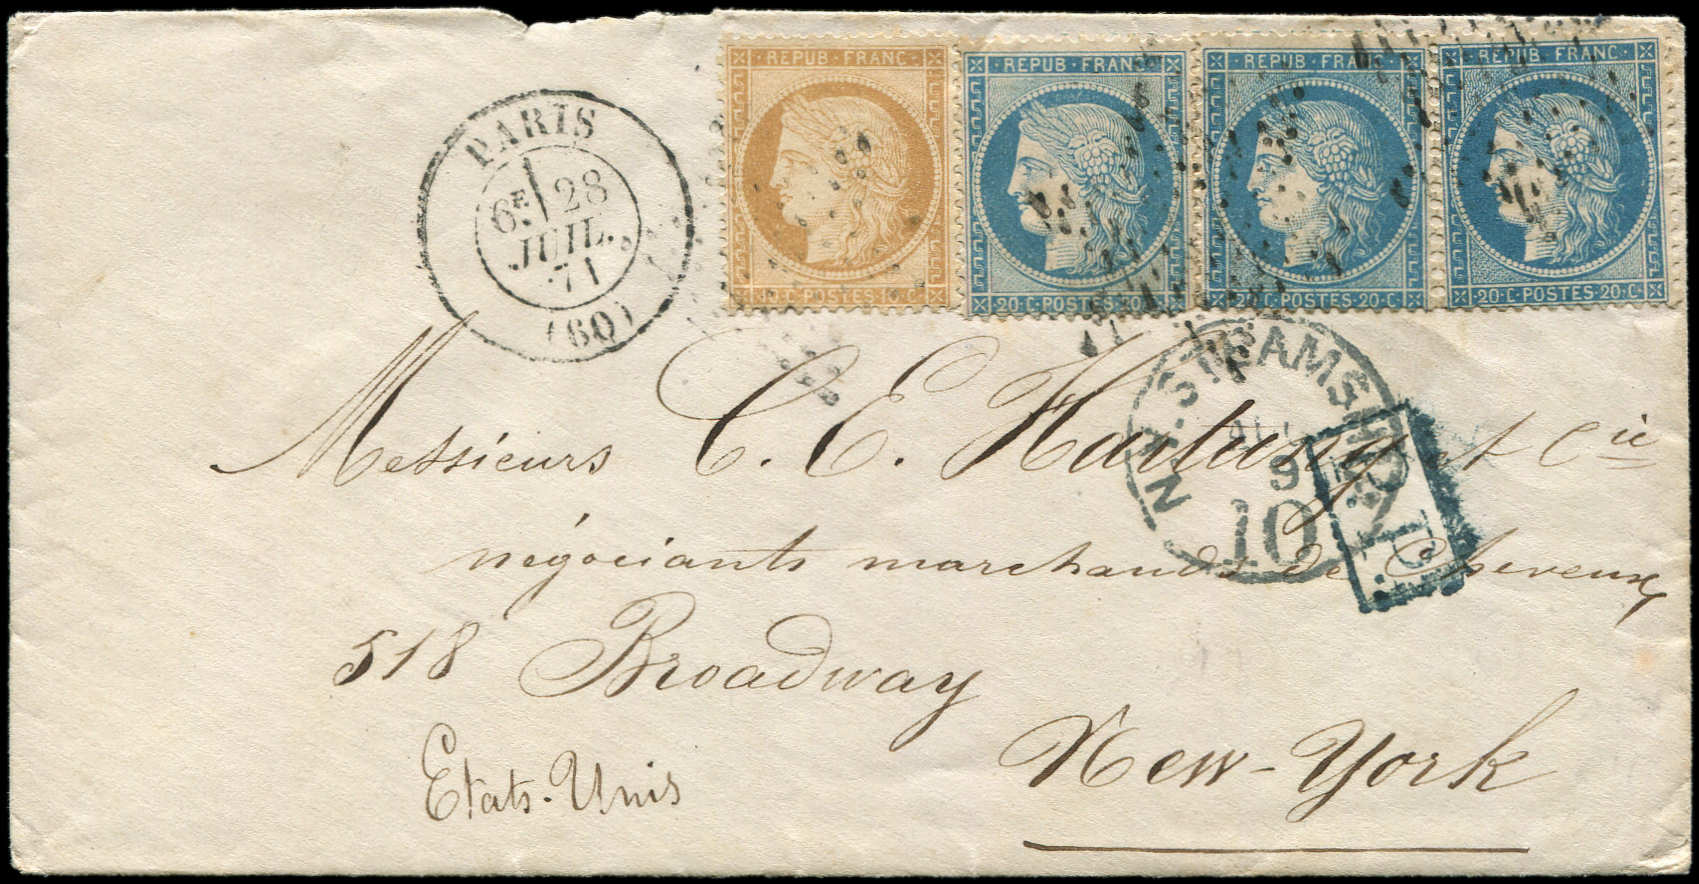 REPUB·FRANC·
REPUB·FRANC
REPUB·FRANC·
REPUB·FRANC·
PARIS
6E 28
JUIL.
71
(60)
POSTES
20·C·POSTES·20·C·
POSTES·20·C·
20·C·POSTES·20·C·
N.Y. STEAMSHIP
9
10
P.
Messieurs C. E. Hartung et Cie
négociants marchands de Cheveux
518 Broadway
New-York
Etats-Unis